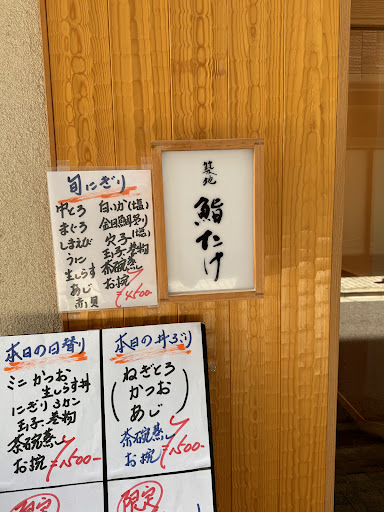 築地
鮨たけ
旬にぎり
中とろ
まぐろ
しまえび
うに
生しらす
あじ
赤貝
白いか(塩)
金目鯛(炙り)
穴子(塩)
玉子・巻物
茶碗蒸し
お椀
¥4500-
本日の日替り
ミニ かつお
生しらす丼
にぎり3カン
玉子・巻物
茶碗蒸し
お椀
¥1,500-
本日の丼ぶり
ねぎとろ
かつお
あじ
茶碗蒸し
お椀
¥1,500-
限定
限定